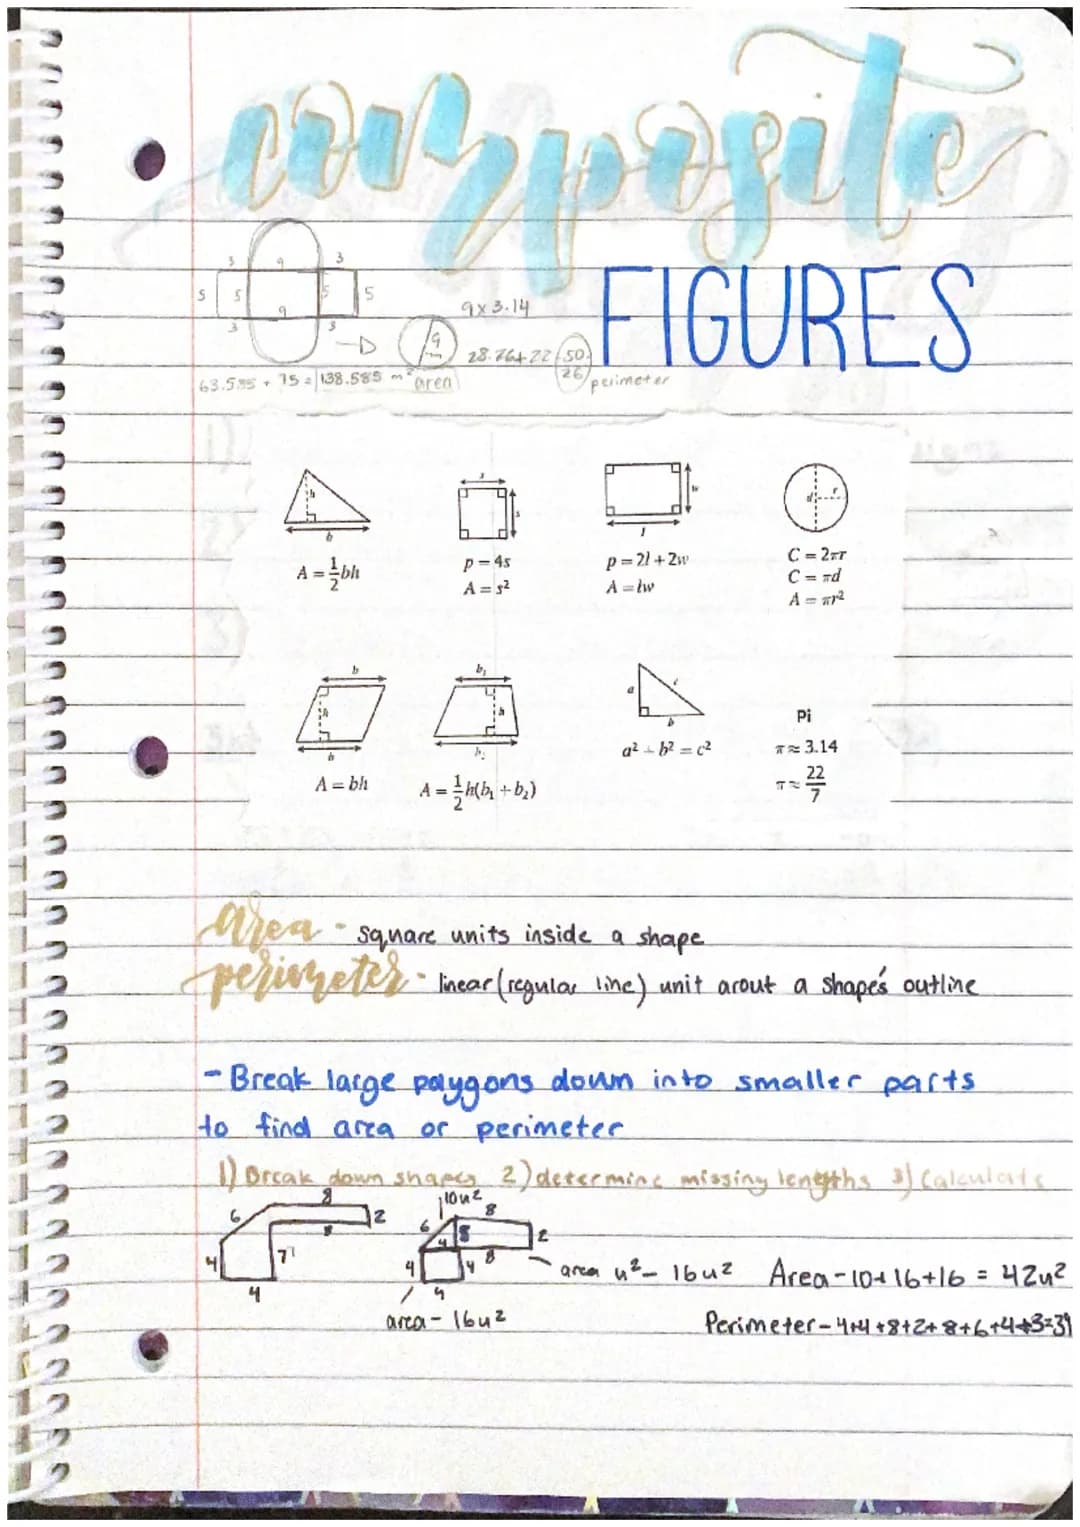 composite
FIGURES
3 9 3
5 5 5 5
9
3 3
9
9 x 3.14
28.26 + 22 = 50.26
perimeter
63.585 + 75 = 138.585 m² area
h
b
A = 1/2 bh
s
s
p = 4s
A = s²
w
l
p = 2l + 2w
A = lw
d r
C = 2πr
C = πd
A = πr²
b
h
b
A = bh
b₁
h
b₂
A = 1/2 h(b₁ + b₂)
a c
b
a² + b² = c²
Pi
π ≈ 3.14
π ≈ 22/7
area - square units inside a shape
perimeter - linear (regular line) unit arout a shape's outline
- Break large polygons down into smaller parts
to find area or perimeter
1) Break down shapes 2) determine missing lengths 3) Calculate
8
6 2
8
4 7
4
10u²
6 8
4 2
4 4 8
4
area u² - 16u²
area - 16u²
Area - 10+16+16 = 42u²
Perimeter - 4+4+8+2+8+6+4+3=39